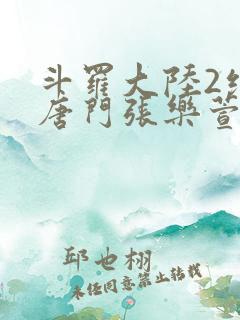 斗羅大陸2
唐門張樂萱
邱也栩
未经同意禁止转载